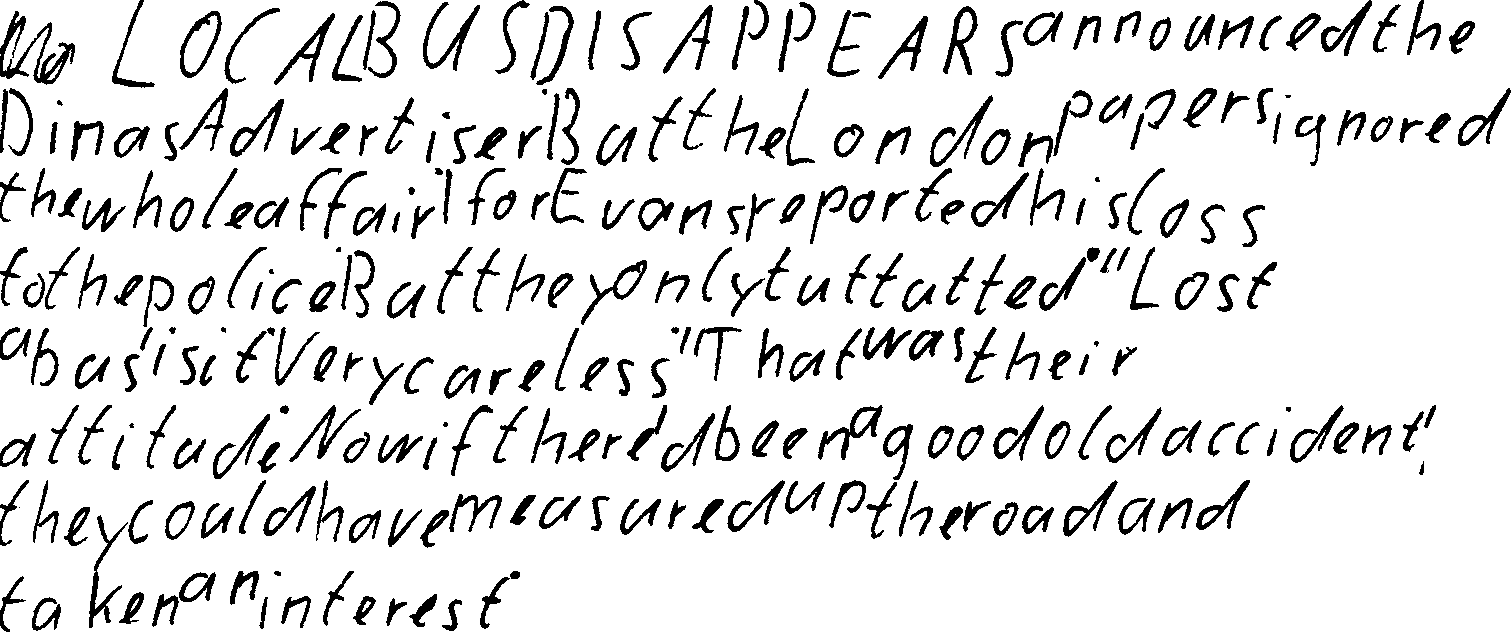 LOCAL BUS DISAPPEARS announced the
Dinas Advertiser But the London papers ignored
the whole affair for Evans reported his loss
to the police But they only tuttutted. "Lost
a bus' is it Very careless." That was their
attitude. Now if there'd been a good old accident",
they could have measured up the road and
taken an interest.